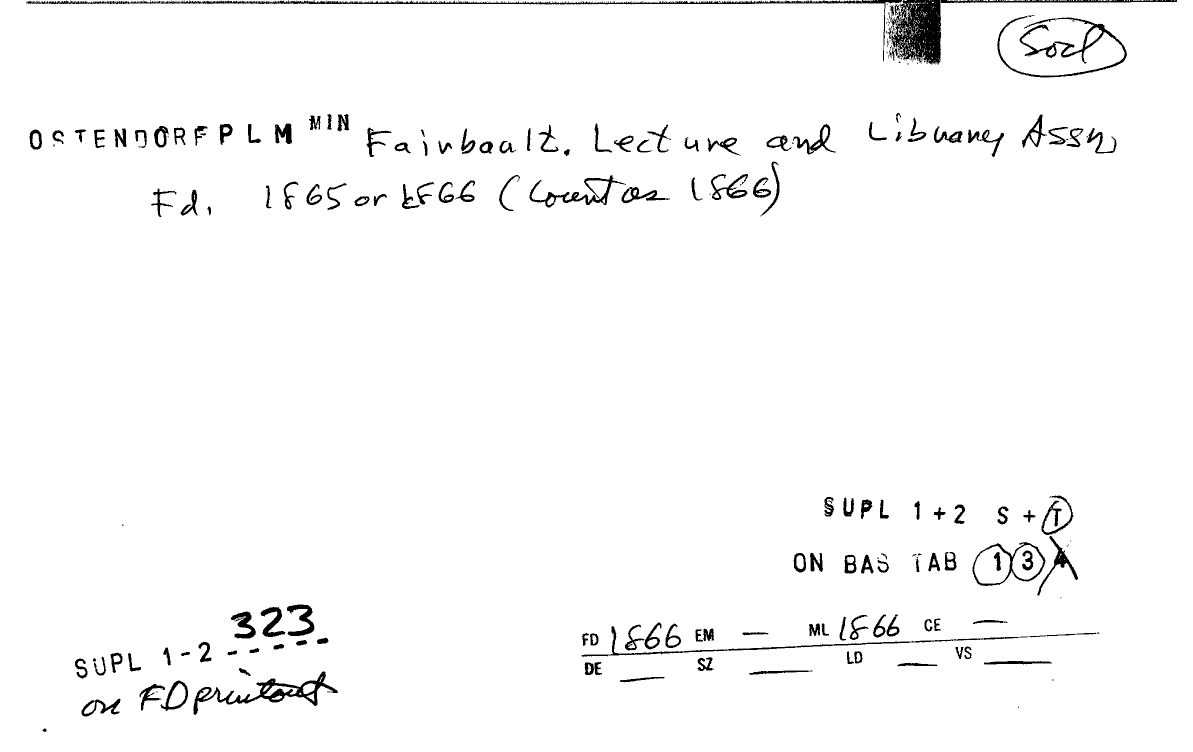 Socl
OSTENDORF P L M MIN Fairbault. Lecture and Library Assn
Fd. 1865 or 1866 (Count as 1866)
SUPL 1+2 S + T
ON BAS TAB 1 3
323
SUPL 1-2 -----
on FD printout
FD 1866 EM — ML 1866 CE —
DE __ SZ __ LD __ VS __